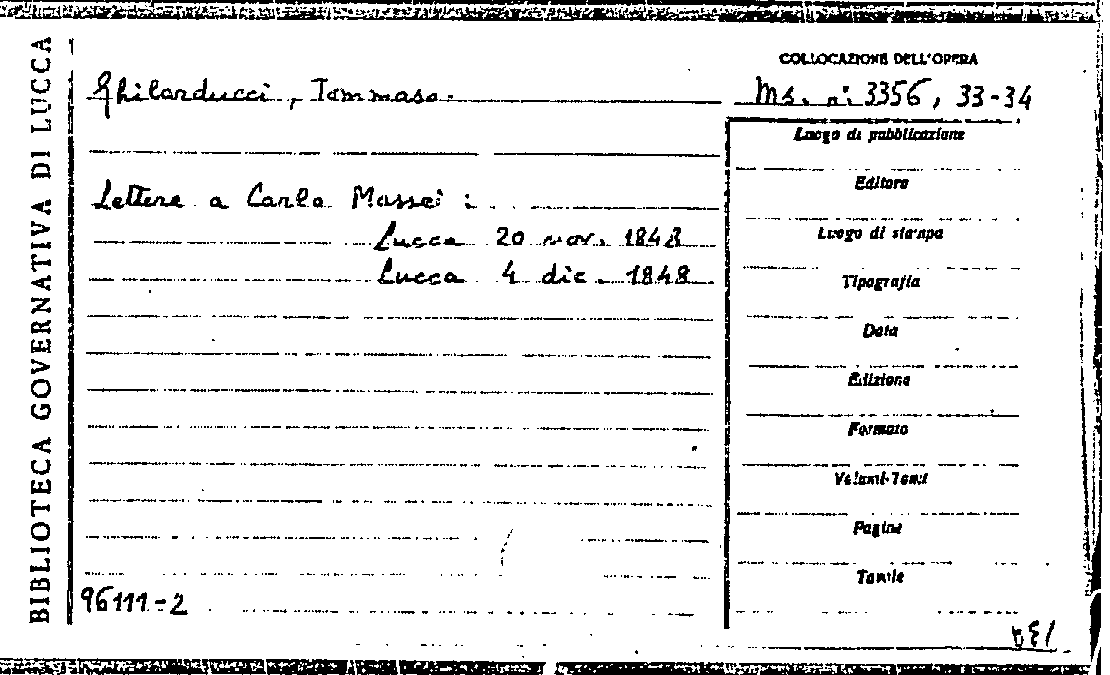 BIBLIOTECA GOVERNATIVA DI LUCCA
Ghilarducci, Tommaso.
Lettere a Carlo Massei :
Lucca 20 nov. 1848
Lucca 4 dic. 1848
96111-2
COLLOCAZIONE DELL'OPERA
Ms. n. 3356, 33-34
Luogo di pubblicazione
Editore
Luogo di stampa
Tipografia
Data
Edizione
Formato
Volumi-Tomi
Pagine
Tavole